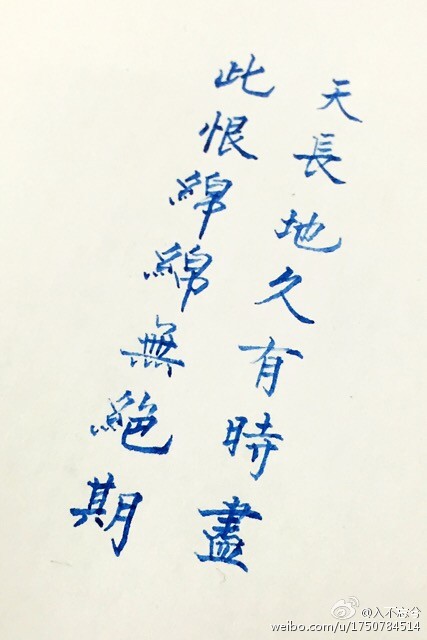 天長地久有時盡
此恨綿綿無絕期
weibo.com/u/1750784514